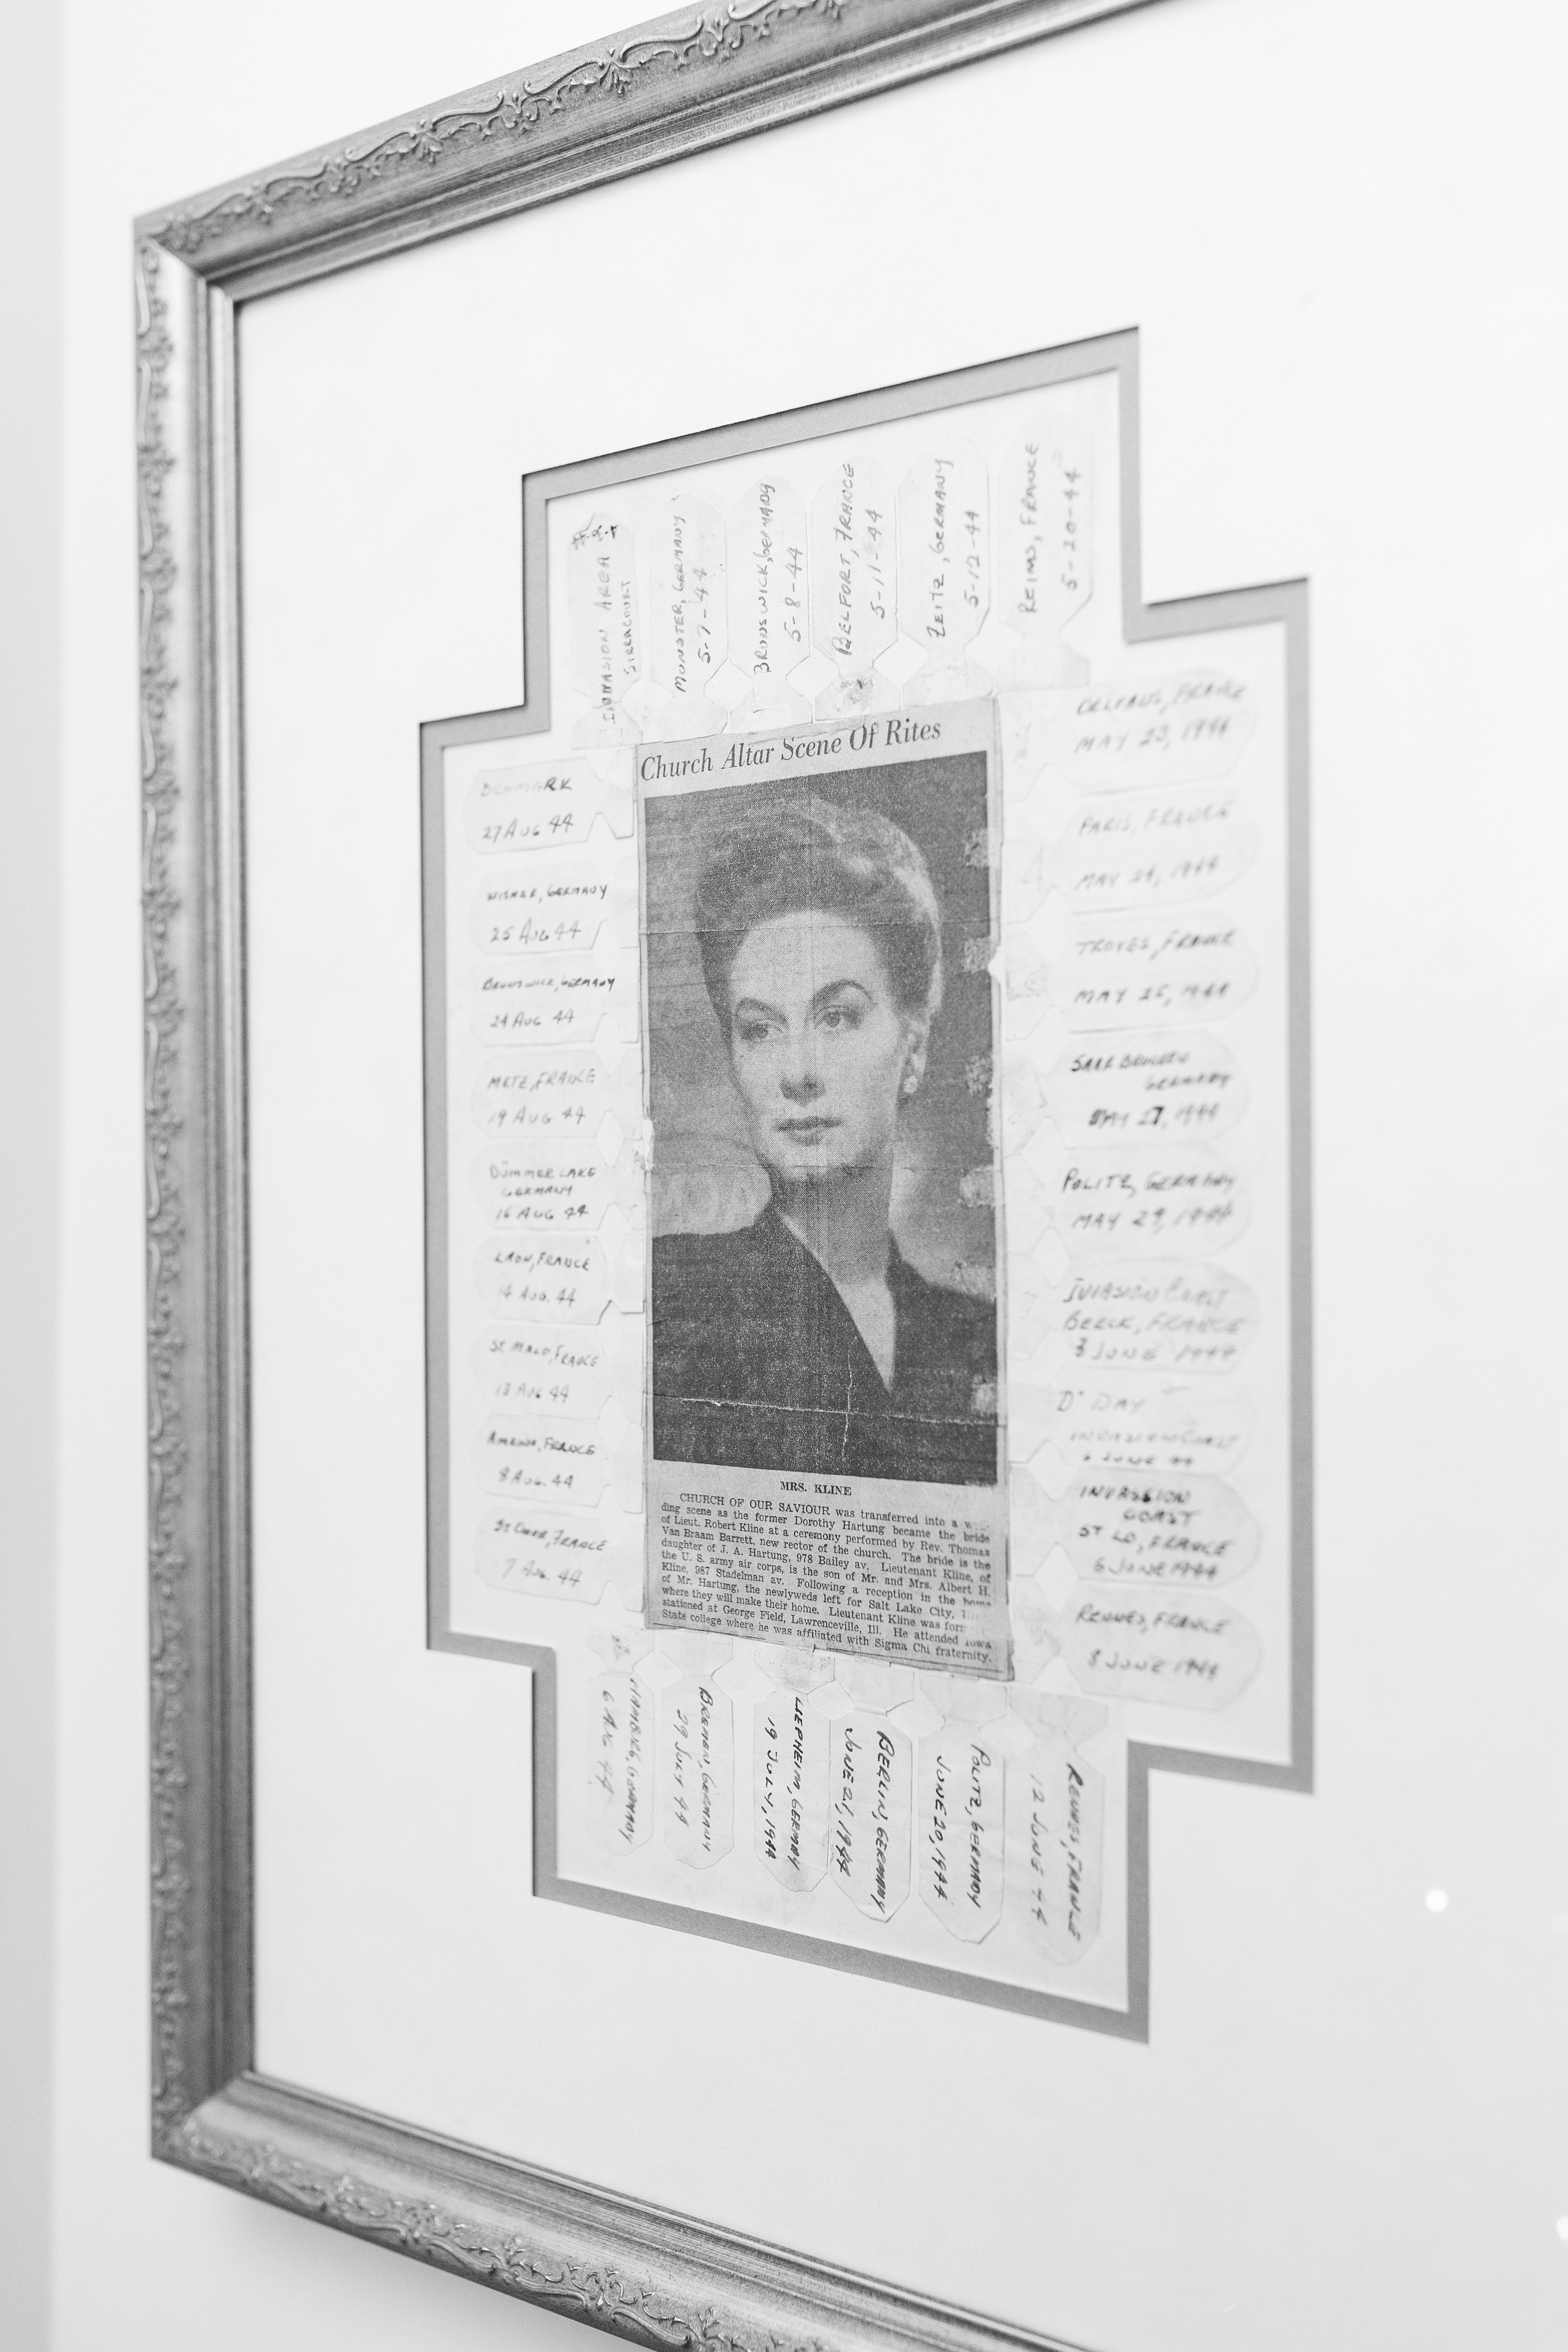 INVASION AREA
SIRRACOURT
MUNSTER, GERMANY
5-7-44
BRUNSWICK, GERMANY
5-8-44
BELFORT, FRANCE
5-11-44
ZEITZ, GERMANY
5-12-44
REIMS, FRANCE
5-20-44
ORLEANS, FRANCE
MAY 23, 1944
PARIS, FRANCE
MAY 24, 1944
TROYES, FRANCE
MAY 25, 1944
SAARBRUCKEN
GERMANY
MAY 27, 1944
POLITZ, GERMANY
MAY 29, 1944
COAST
BERCK, FRANCE
3 JUNE 1944
D' DAY
INVASION COAST
6 JUNE 44
INVASSION
COAST
ST LO, FRANCE
6 JUNE 1944
RENNES, FRANCE
8 JUNE 1944
RENNES, FRANCE
12 JUNE 44
POLITZ, GERMANY
JUNE 20, 1944
BERLIN, GERMANY
JUNE 21, 1944
LIEPHEIM, GERMANY
19 JULY, 1944
BREMEN, GERMANY
29 JULY 44
HAMBURG, GERMANY
6 AUG 44
ST OMER, FRANCE
7 AUG. 44
AMIENS, FRANCE
8 AUG. 44
ST. MALO, FRANCE
13 AUG 44
LAON, FRANCE
14 AUG. 44
DÜMMER LAKE
GERMANY
16 AUG 44
METZ, FRANCE
19 AUG 44
BRUNSWICK, GERMANY
24 AUG 44
WISMER, GERMANY
25 AUG 44
DENMARK
27 AUG 44
Church Altar Scene Of Rites
MRS. KLINE
CHURCH OF OUR SAVIOUR was transferred into a
ding scene as the former Dorothy Hartung became the bride
of Lieut. Robert Kline at a ceremony performed by Rev. Thomas
Van Braam Barrett, new rector of the church. The bride is the
daughter of J. A. Hartung, 978 Bailey av. Lieutenant Kline, of
the U. S. army air corps, is the son of Mr. and Mrs. Albert H.
Kline, 987 Stadelman av. Following a reception in the home
of Mr. Hartung, the newlyweds left for Salt Lake City,
where they will make their home. Lieutenant Kline was
stationed at George Field, Lawrenceville, Ill. He attended Iowa
State college where he was affiliated with Sigma Chi fraternity.